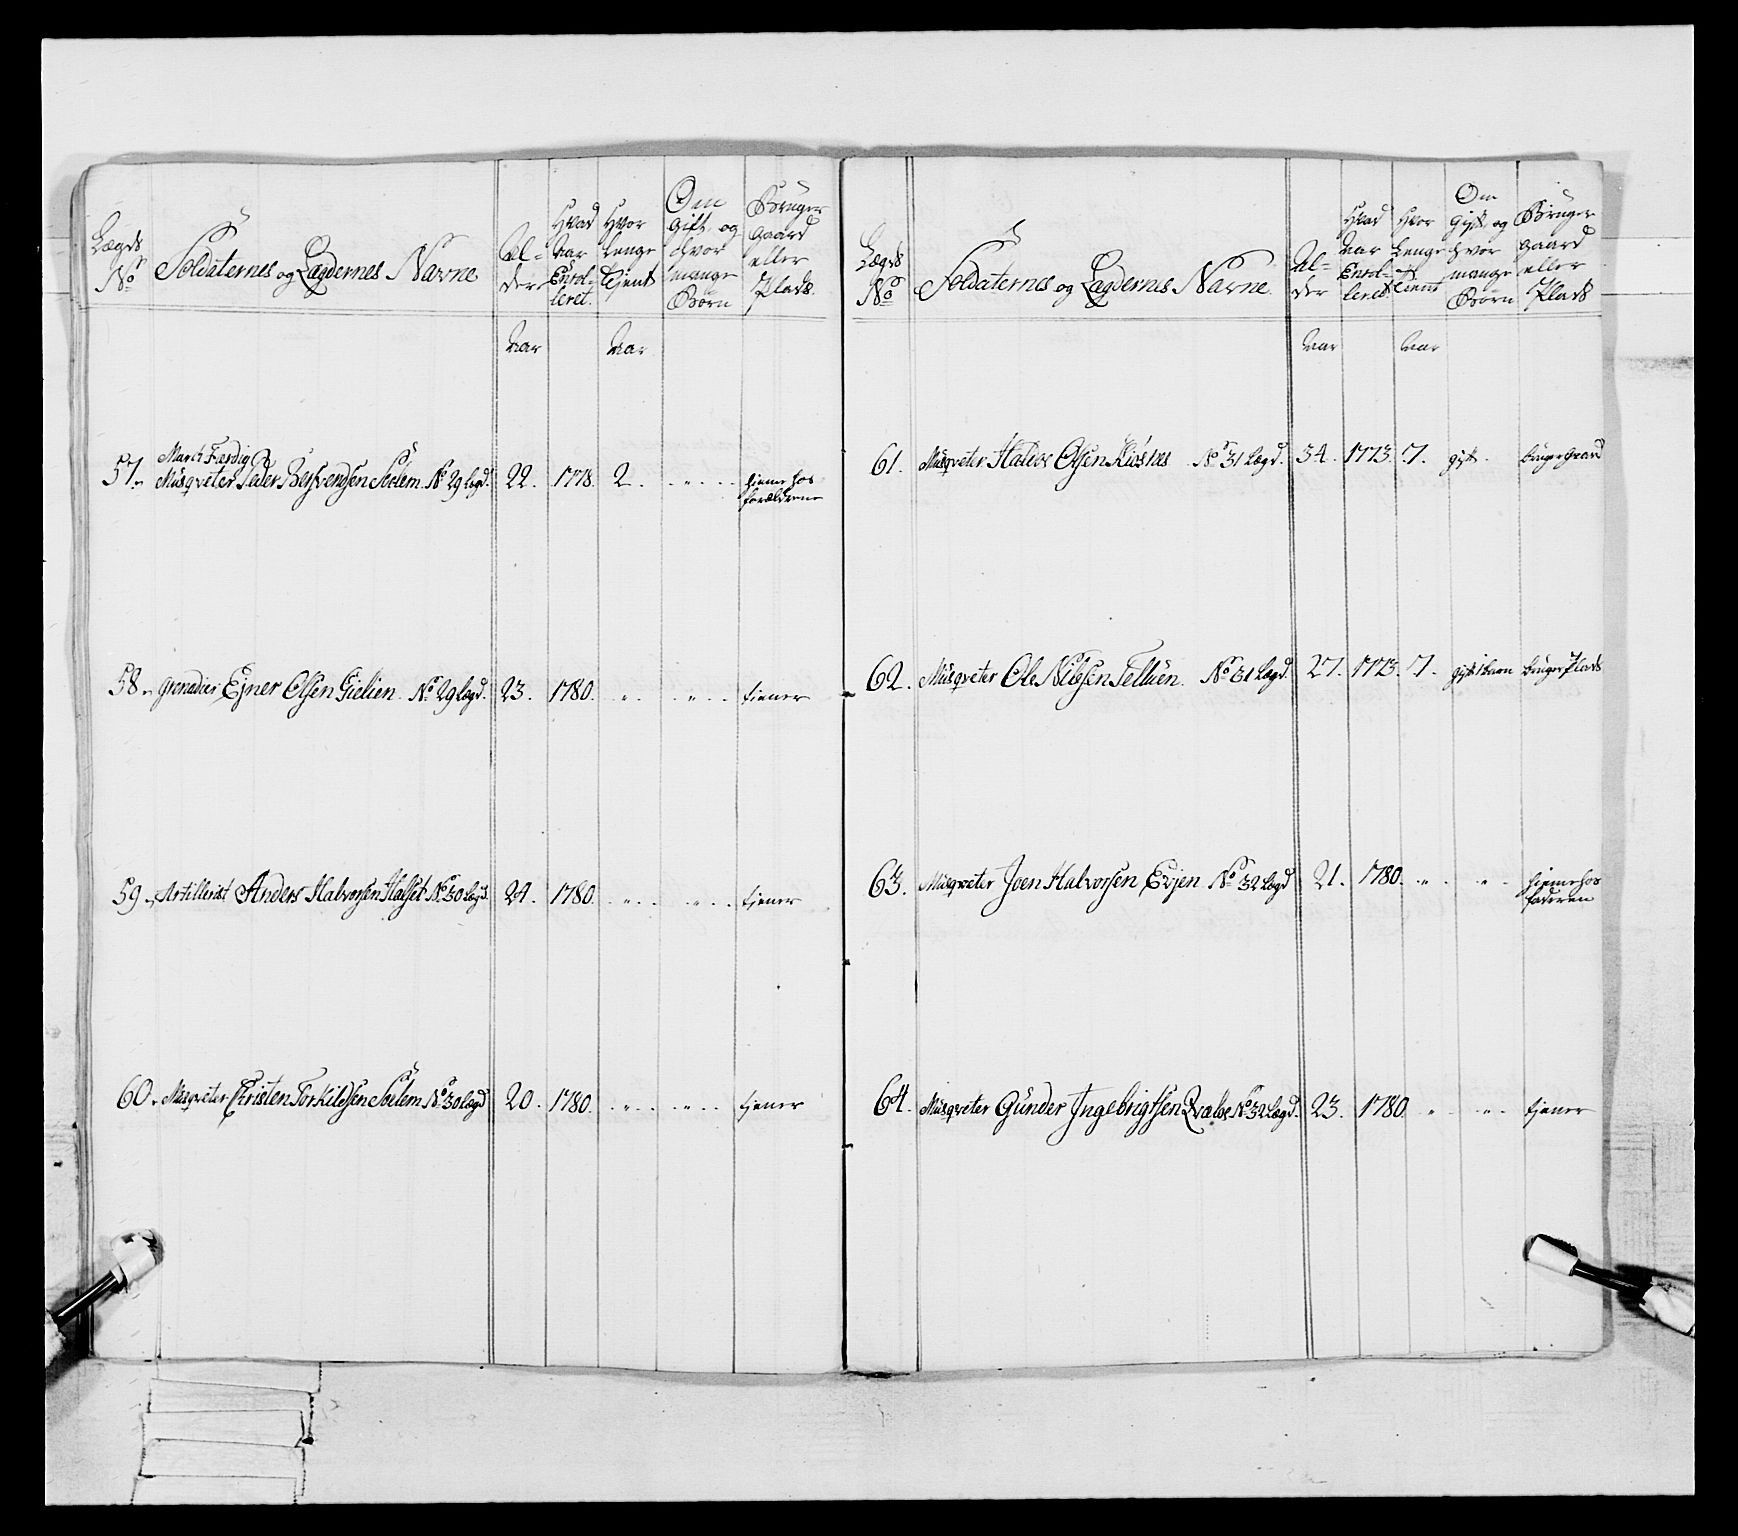 Lægds No
Soldaternes og Lægdernes Navne
Alder
Hvad Aar Enrolleret.
Hvor Lenge Tjent
Om Gift og Hvor mange Børn
Bruger Gaard eller Plads.
Aar Aar
March Færdig
57. Musqveter Peder Sælem No 29 Lægd. 22. 1778. 2. " hieme hos
forældrene
58. Grenadier Ejner Olsen Gielien. No 29 Lægd. 23. 1780. " " tiener
59. Artillerist Anders Halvorsen Halset No 30 Lægd. 24. 1780. " " tjener
60. Musqveter Christen Torkildsen Sælem No 30 Lægd 20. 1780. " " tjener
Lægds No
Soldaternes og Lægdernes Navne.
Alder
Hvad Aar Enrolleret
Hvor Lenge Tient
Om Gift og Hvor mange Børn
Bruger Gaard eller Plads
Aar Aar
61. Musqveter Halvor Olsen No 31 Lægd. 34. 1773. 7. gift. bruger Gaard
62. Musqveter Ole Nilssen Telluen. No 31 Lægd. 27. 1773. 7. gift 1 barn bruger Plads
63. Musqveter Joen Halvorsen Evjen No 32 Lægd 21. 1780. " " hieme hos
faderen
64. Musqveter Gunder Ingebrigtsen No 32 Lægd. 23. 1780. " " tjener